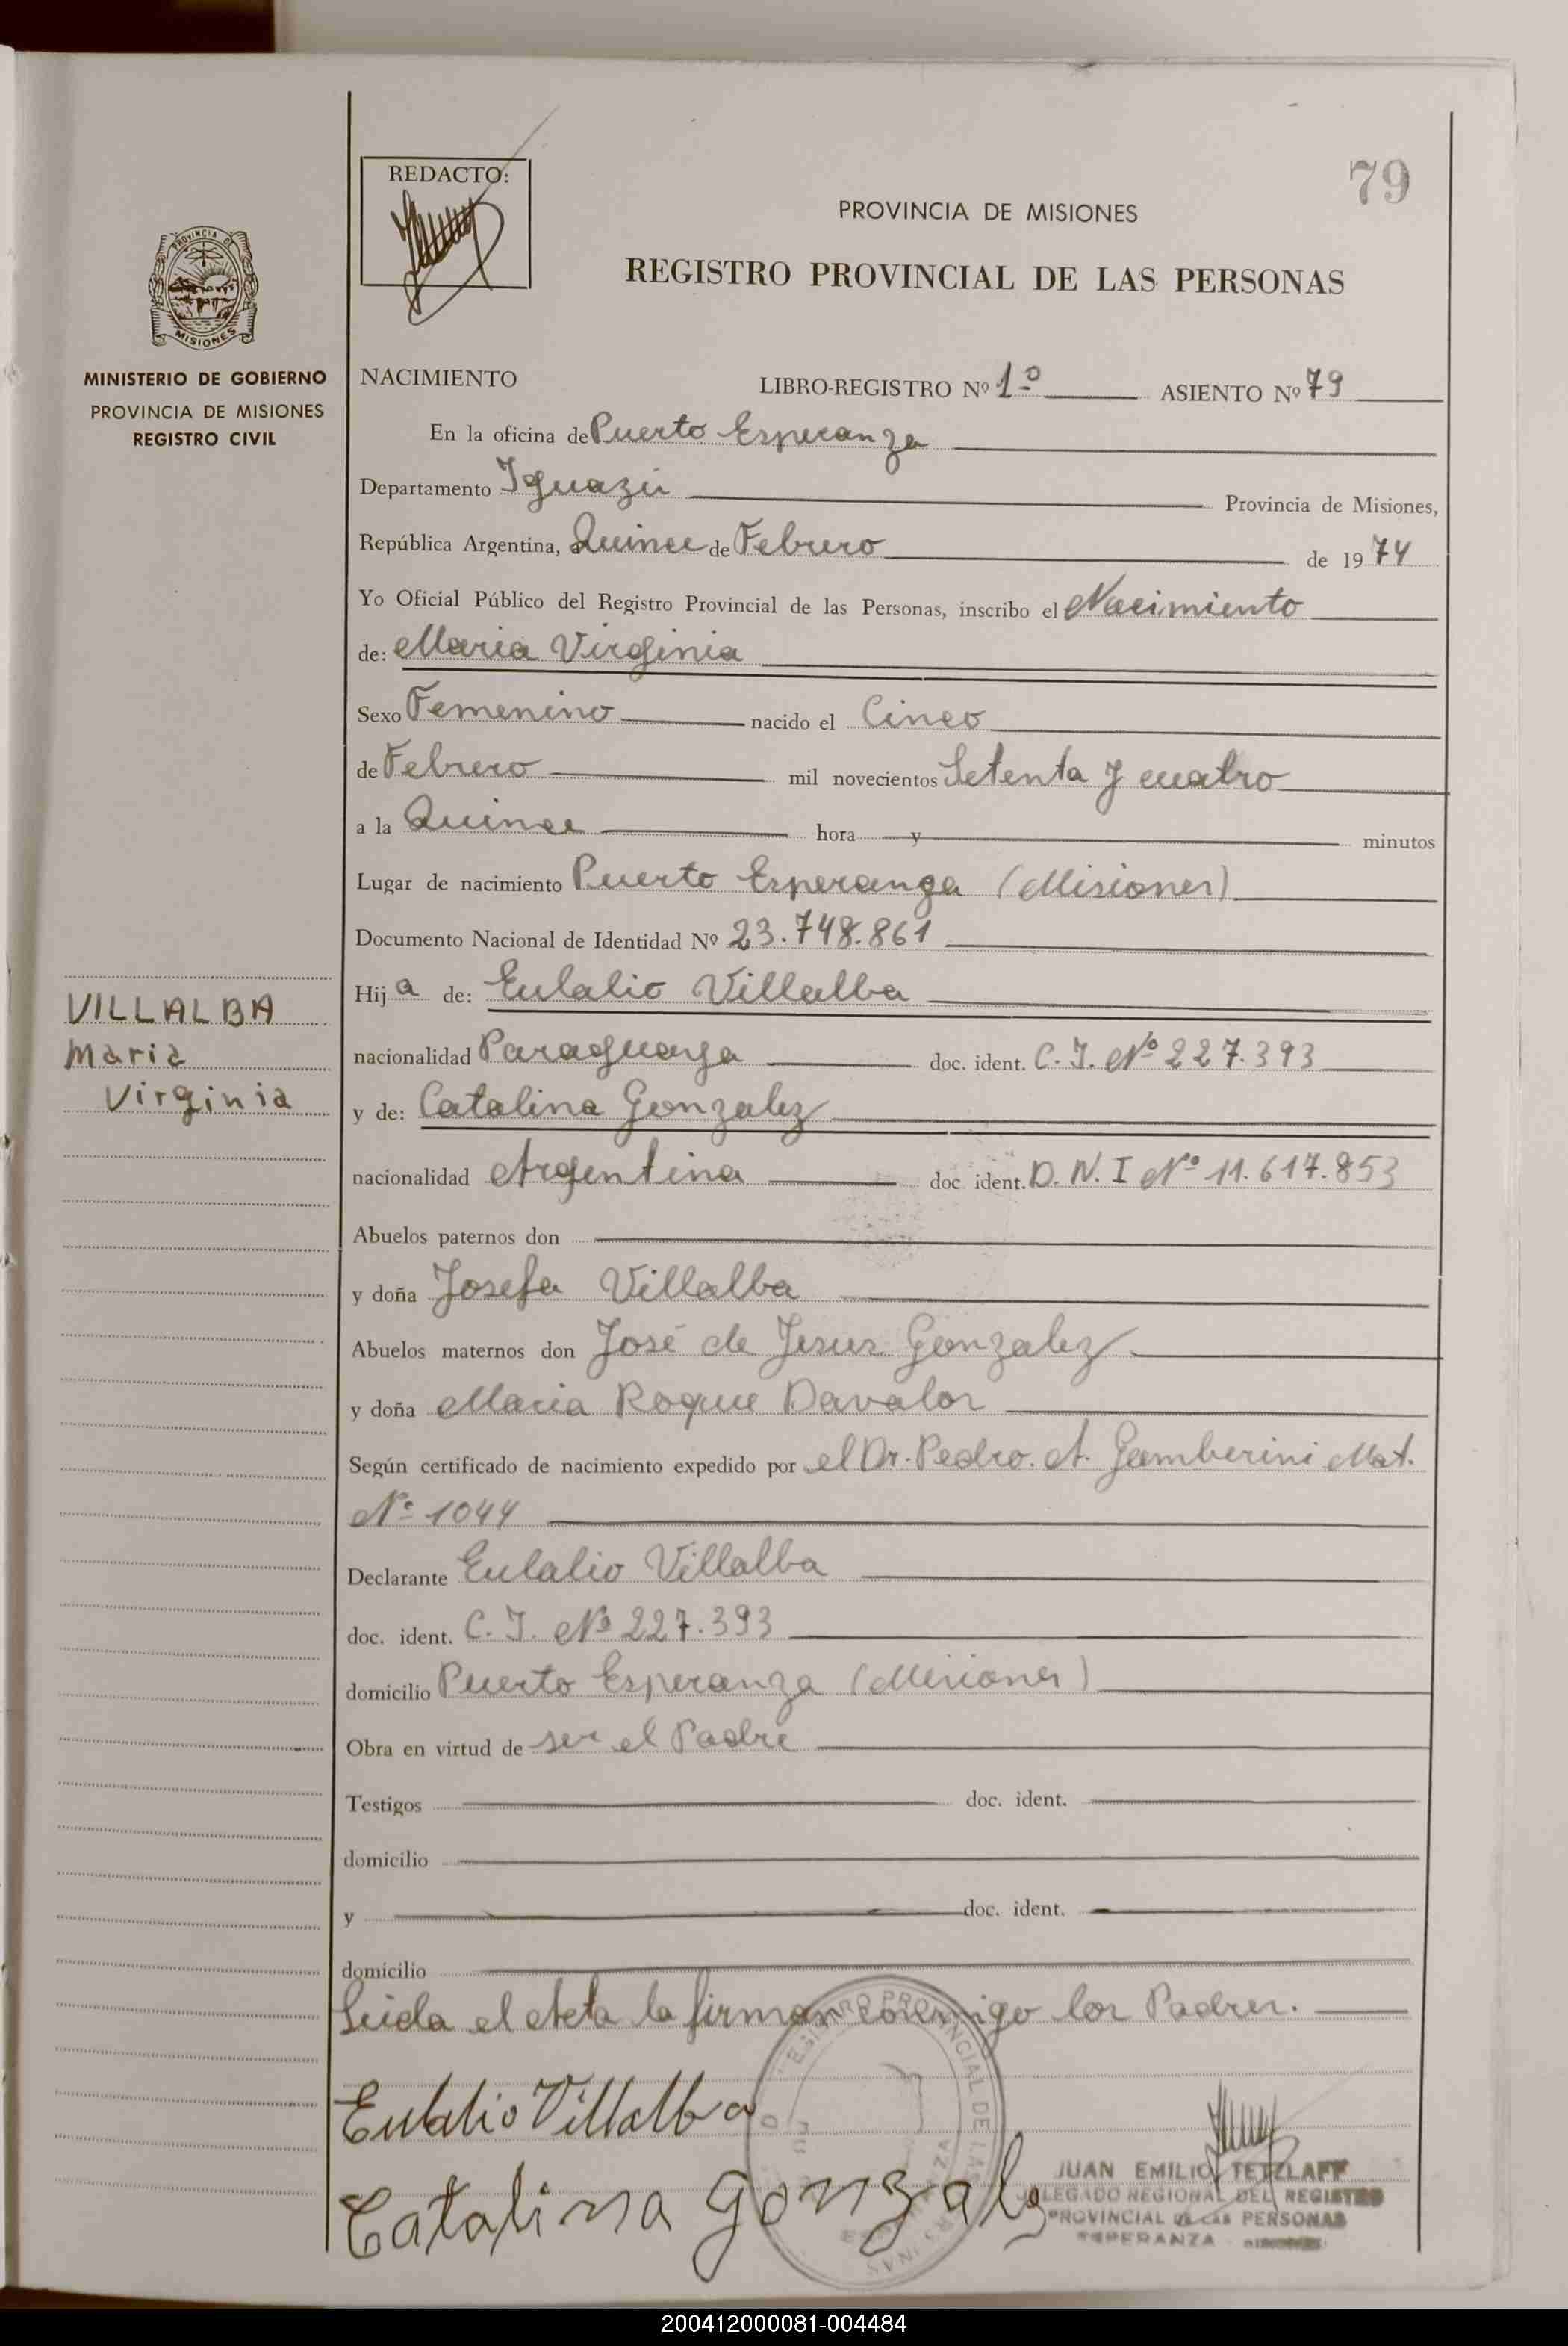 79
REDACTO:
PROVINCIA DE MISIONES
REGISTRO PROVINCIAL DE LAS PERSONAS
PROVINCIA DE
MISIONES
MINISTERIO DE GOBIERNO
PROVINCIA DE MISIONES
REGISTRO CIVIL
NACIMIENTO LIBRO-REGISTRO Nº 1º ASIENTO Nº 79
En la oficina de Puerto Esperanza
Departamento Iguazú Provincia de Misiones,
República Argentina, Quince de Febrero de 1974
Yo Oficial Público del Registro Provincial de las Personas, inscribo el Nacimiento
de: Maria Virginia
Sexo Femenino nacido el Cinco
de Febrero mil novecientos Setenta y cuatro
a la Quince hora y minutos
Lugar de nacimiento Puerto Esperanza (Misiones)
Documento Nacional de Identidad Nº 23.748.861
VILLALBA
Maria
Virginia
Hija de: Eulalio Villalba
nacionalidad Paraguaya doc. ident. C. I. Nº 227.393
y de: Catalina Gonzalez
nacionalidad Argentina doc ident. D. N. I Nº 11.617.853
Abuelos paternos don
y doña Josefa Villalba
Abuelos maternos don José de Jesus Gonzalez
y doña Maria Roque Davalos
Según certificado de nacimiento expedido por el Dr. Pedro. A. Gamberini Mat.
Nº 1044
Declarante Eulalio Villalba
doc. ident. C. I. Nº 227.393
domicilio Puerto Esperanza (Misiones)
Obra en virtud de ser el Padre
Testigos doc. ident.
domicilio
y doc. ident.
domicilio
Leida el Acta la firman conmigo los Padres.
Eulalio Villalba
Catalina Gonzalez
JUAN EMILIO TETZLAFF
DELEGADO REGIONAL DEL REGISTRO
PROVINCIAL DE LAS PERSONAS
ESPERANZA
200412000081-004484